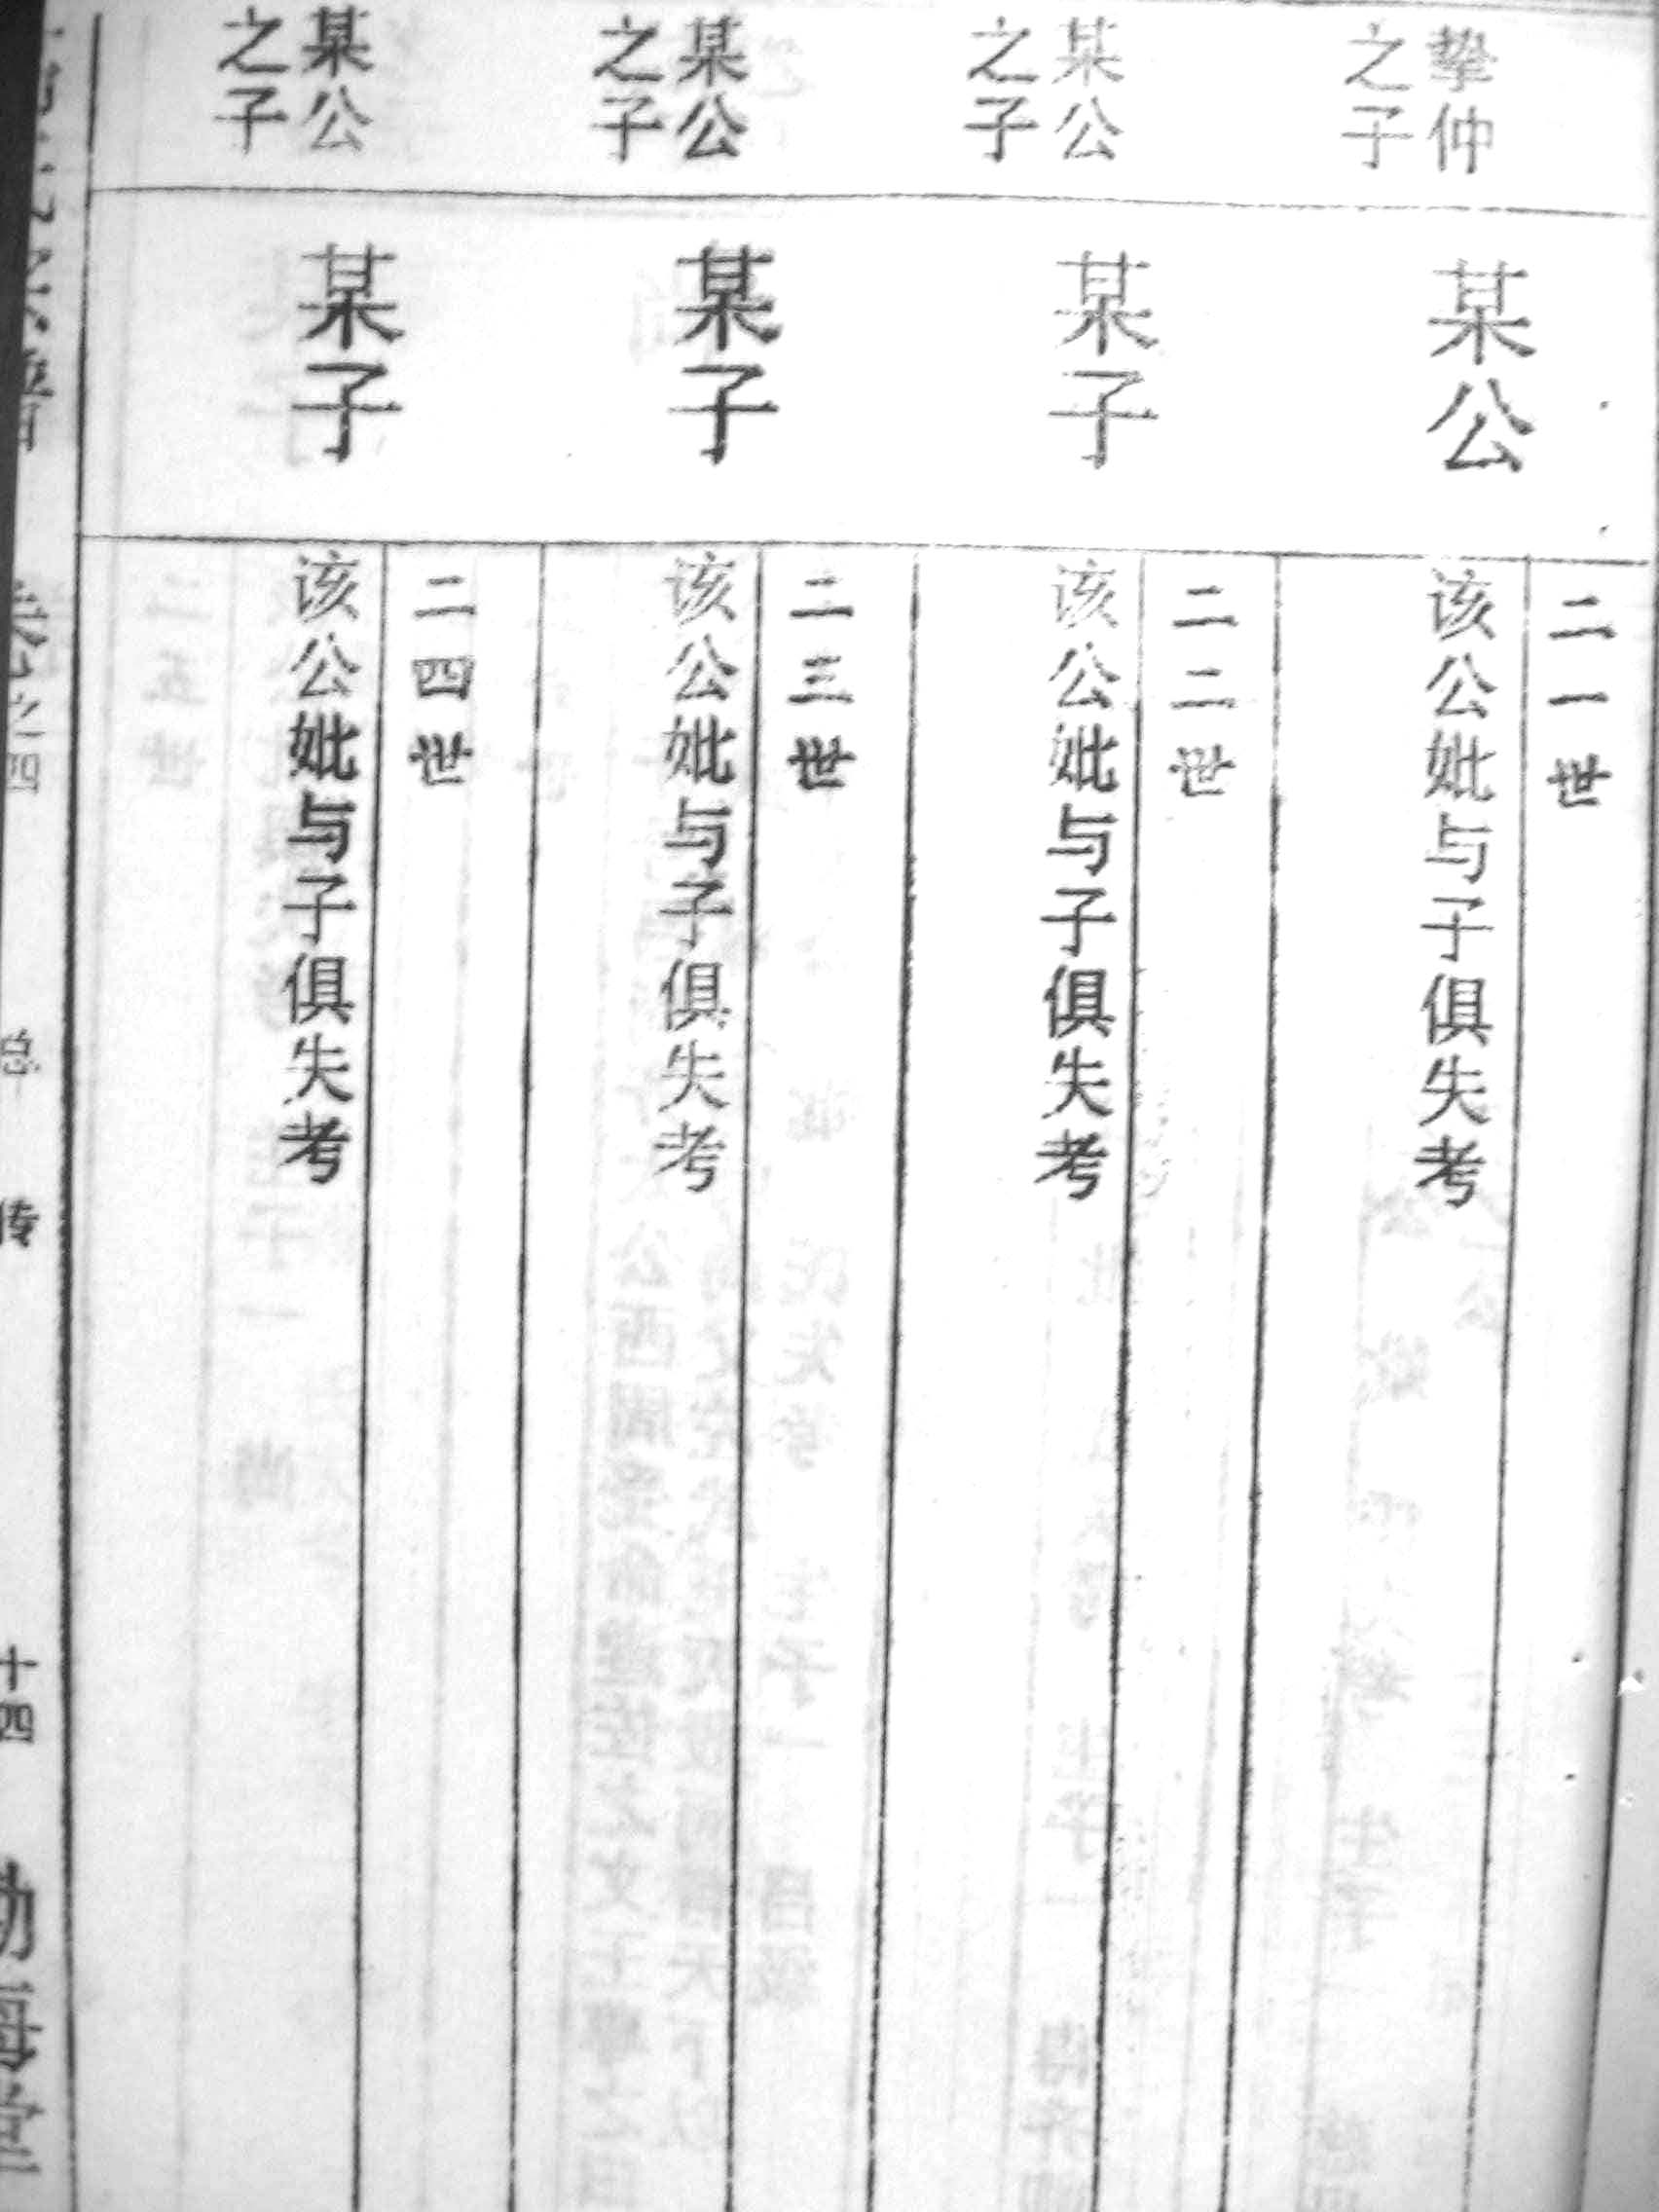 二一世
挚仲
之子
某公
该公妣与子俱失考
二二世
某公
之子
某子
该公妣与子俱失考
二三世
某公
之子
某子
该公妣与子俱失考
二四世
某公
之子
某子
该公妣与子俱失考
总传
十四